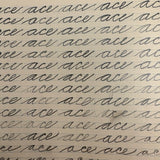 ace ace ace ace ace
ace ace ace ace ace
ace ace ace ace ace
ace ace ace ace ace
ace ace ace ace ace
ace ace ace ace ace
ace ace ace ace
ace ace ace ace
ace ace ace ace